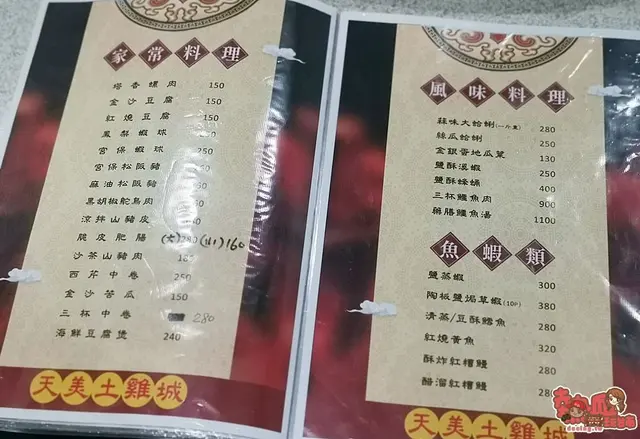 家常料理
塔香螺肉 150
金沙豆腐 150
紅燒豆腐 150
鳳梨蝦球 250
宮保蝦球 250
宮保松阪豬
麻油松阪豬
黑胡椒鴕鳥肉
涼拌山豬皮
脆皮肥腸 (大)280 (小)160
沙茶山豬肉
西芹中卷 250
金沙苦瓜 150
三杯中卷 280
海鮮豆腐煲 240
天美土雞城
風味料理
蒜味大蛤蜊(一斤重) 280
絲瓜蛤蜊 250
金銀蛋地瓜葉 130
鹽酥溪蝦 250
鹽酥蟋蟀 400
三杯鱷魚肉 900
藥膳鱷魚湯 1100
魚蝦類
鹽蒸蝦 300
陶板鹽焗草蝦(10P) 380
清蒸/豆酥鱈魚 280
紅燒黃魚 320
酥炸紅糟鰻 280
醋溜紅糟鰻 280
天美土雞城